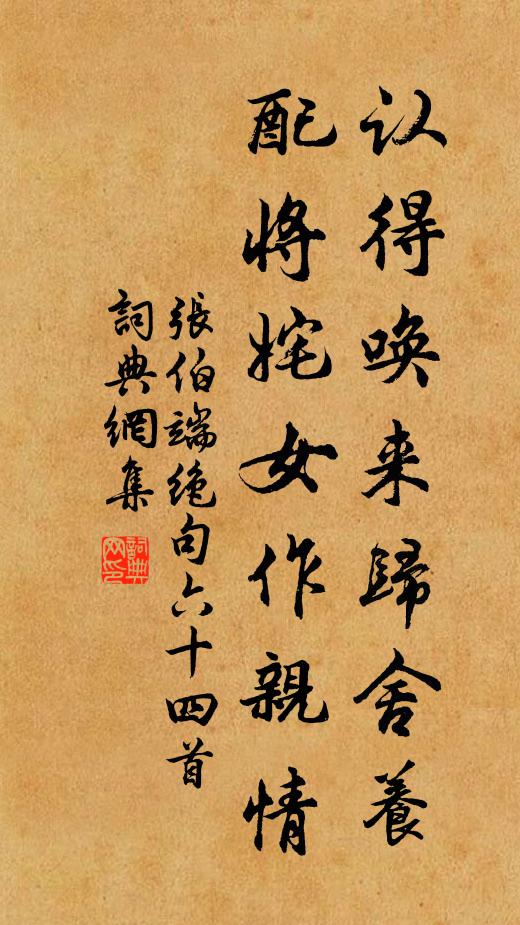 认得唤来歸舍養
配将姹女作親情
張伯端绝句六十四首
詞典網集
詞典
网印